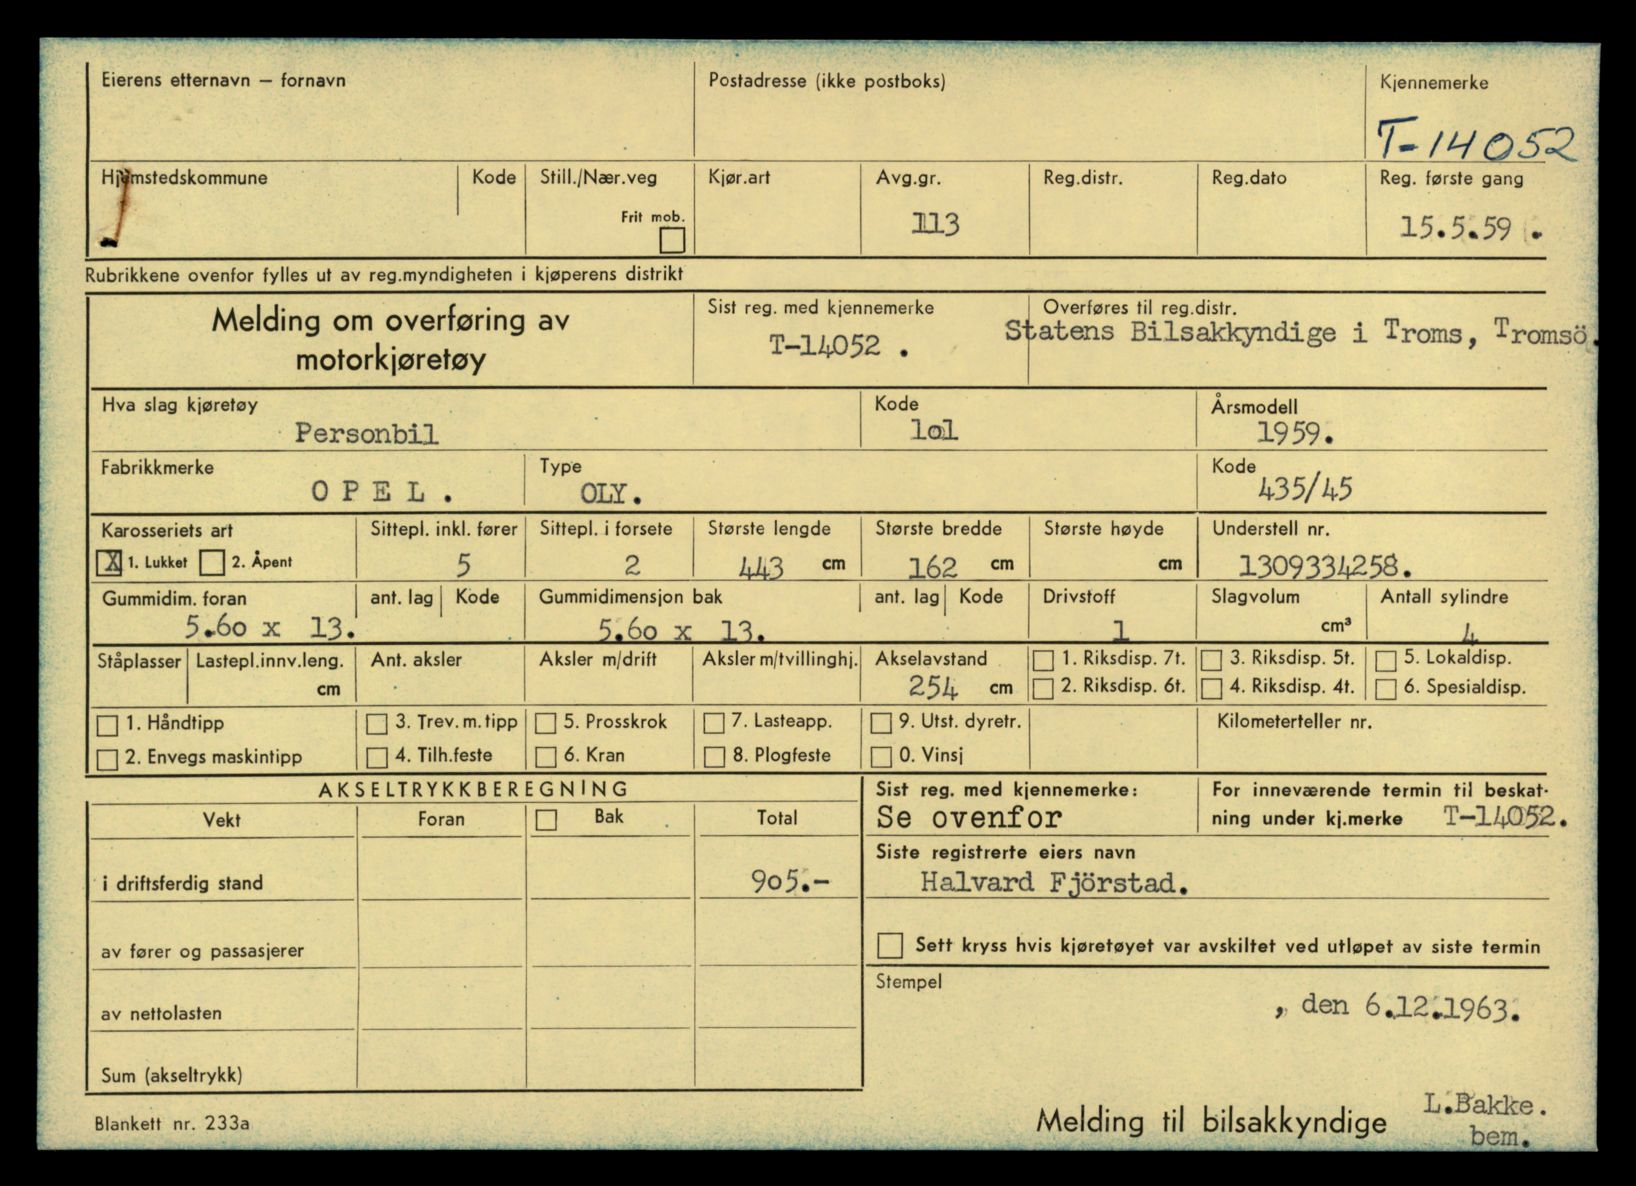 Eierens etternavn – fornavn Postadresse (ikke postboks) Kjennemerke
T-14052
Hjemstedskommune Kode Still./Nær.veg Kjør.art Avg.gr. Reg.distr. Reg.dato Reg. første gang
Frit mob. 113 15.5.59 .
Rubrikkene ovenfor fylles ut av reg.myndigheten i kjøperens distrikt
Melding om overføring av Sist reg. med kjennemerke Overføres til reg.distr.
motorkjøretøy T-14052 . Statens Bilsakkyndige i Troms, Tromsö.
Hva slag kjøretøy Kode Årsmodell
Personbil lol 1959.
Fabrikkmerke Type Kode
O P E L . OLY. 435/45
Karosseriets art Sittepl. inkl. fører Sittepl. i forsete Største lengde Største bredde Største høyde Understell nr.
X 1. Lukket 2. Åpent 5 2 443 cm 162 cm cm 1309334258.
Gummidim. foran ant. lag Kode Gummidimensjon bak ant. lag Kode Drivstoff Slagvolum Antall sylindre
5.60 x 13. 5.60 x 13. 1 cm³ 4
Ståplasser Lastepl.innv.leng. Ant. aksler Aksler m/drift Aksler m/tvillinghj. Akselavstand 1. Riksdisp. 7t. 3. Riksdisp. 5t. 5. Lokaldisp.
cm 254 cm 2. Riksdisp. 6t. 4. Riksdisp. 4t. 6. Spesialdisp.
1. Håndtipp 3. Trev. m. tipp 5. Prosskrok 7. Lasteapp. 9. Utst. dyretr. Kilometerteller nr.
2. Envegs maskintipp 4. Tilh.feste 6. Kran 8. Plogfeste 0. Vinsj
AKSELTRYKKBEREGNING Sist reg. med kjennemerke: For inneværende termin til beskat-
Vekt Foran Bak Total Se ovenfor ning under kj.merke T-14052.
Siste registrerte eiers navn
i driftsferdig stand 905.- Halvard Fjörstad.
av fører og passasjerer Sett kryss hvis kjøretøyet var avskiltet ved utløpet av siste termin
Stempel
av nettolasten , den 6.12.1963.
Sum (akseltrykk)
Blankett nr. 233a Melding til bilsakkyndige L.Bakke.
bem.